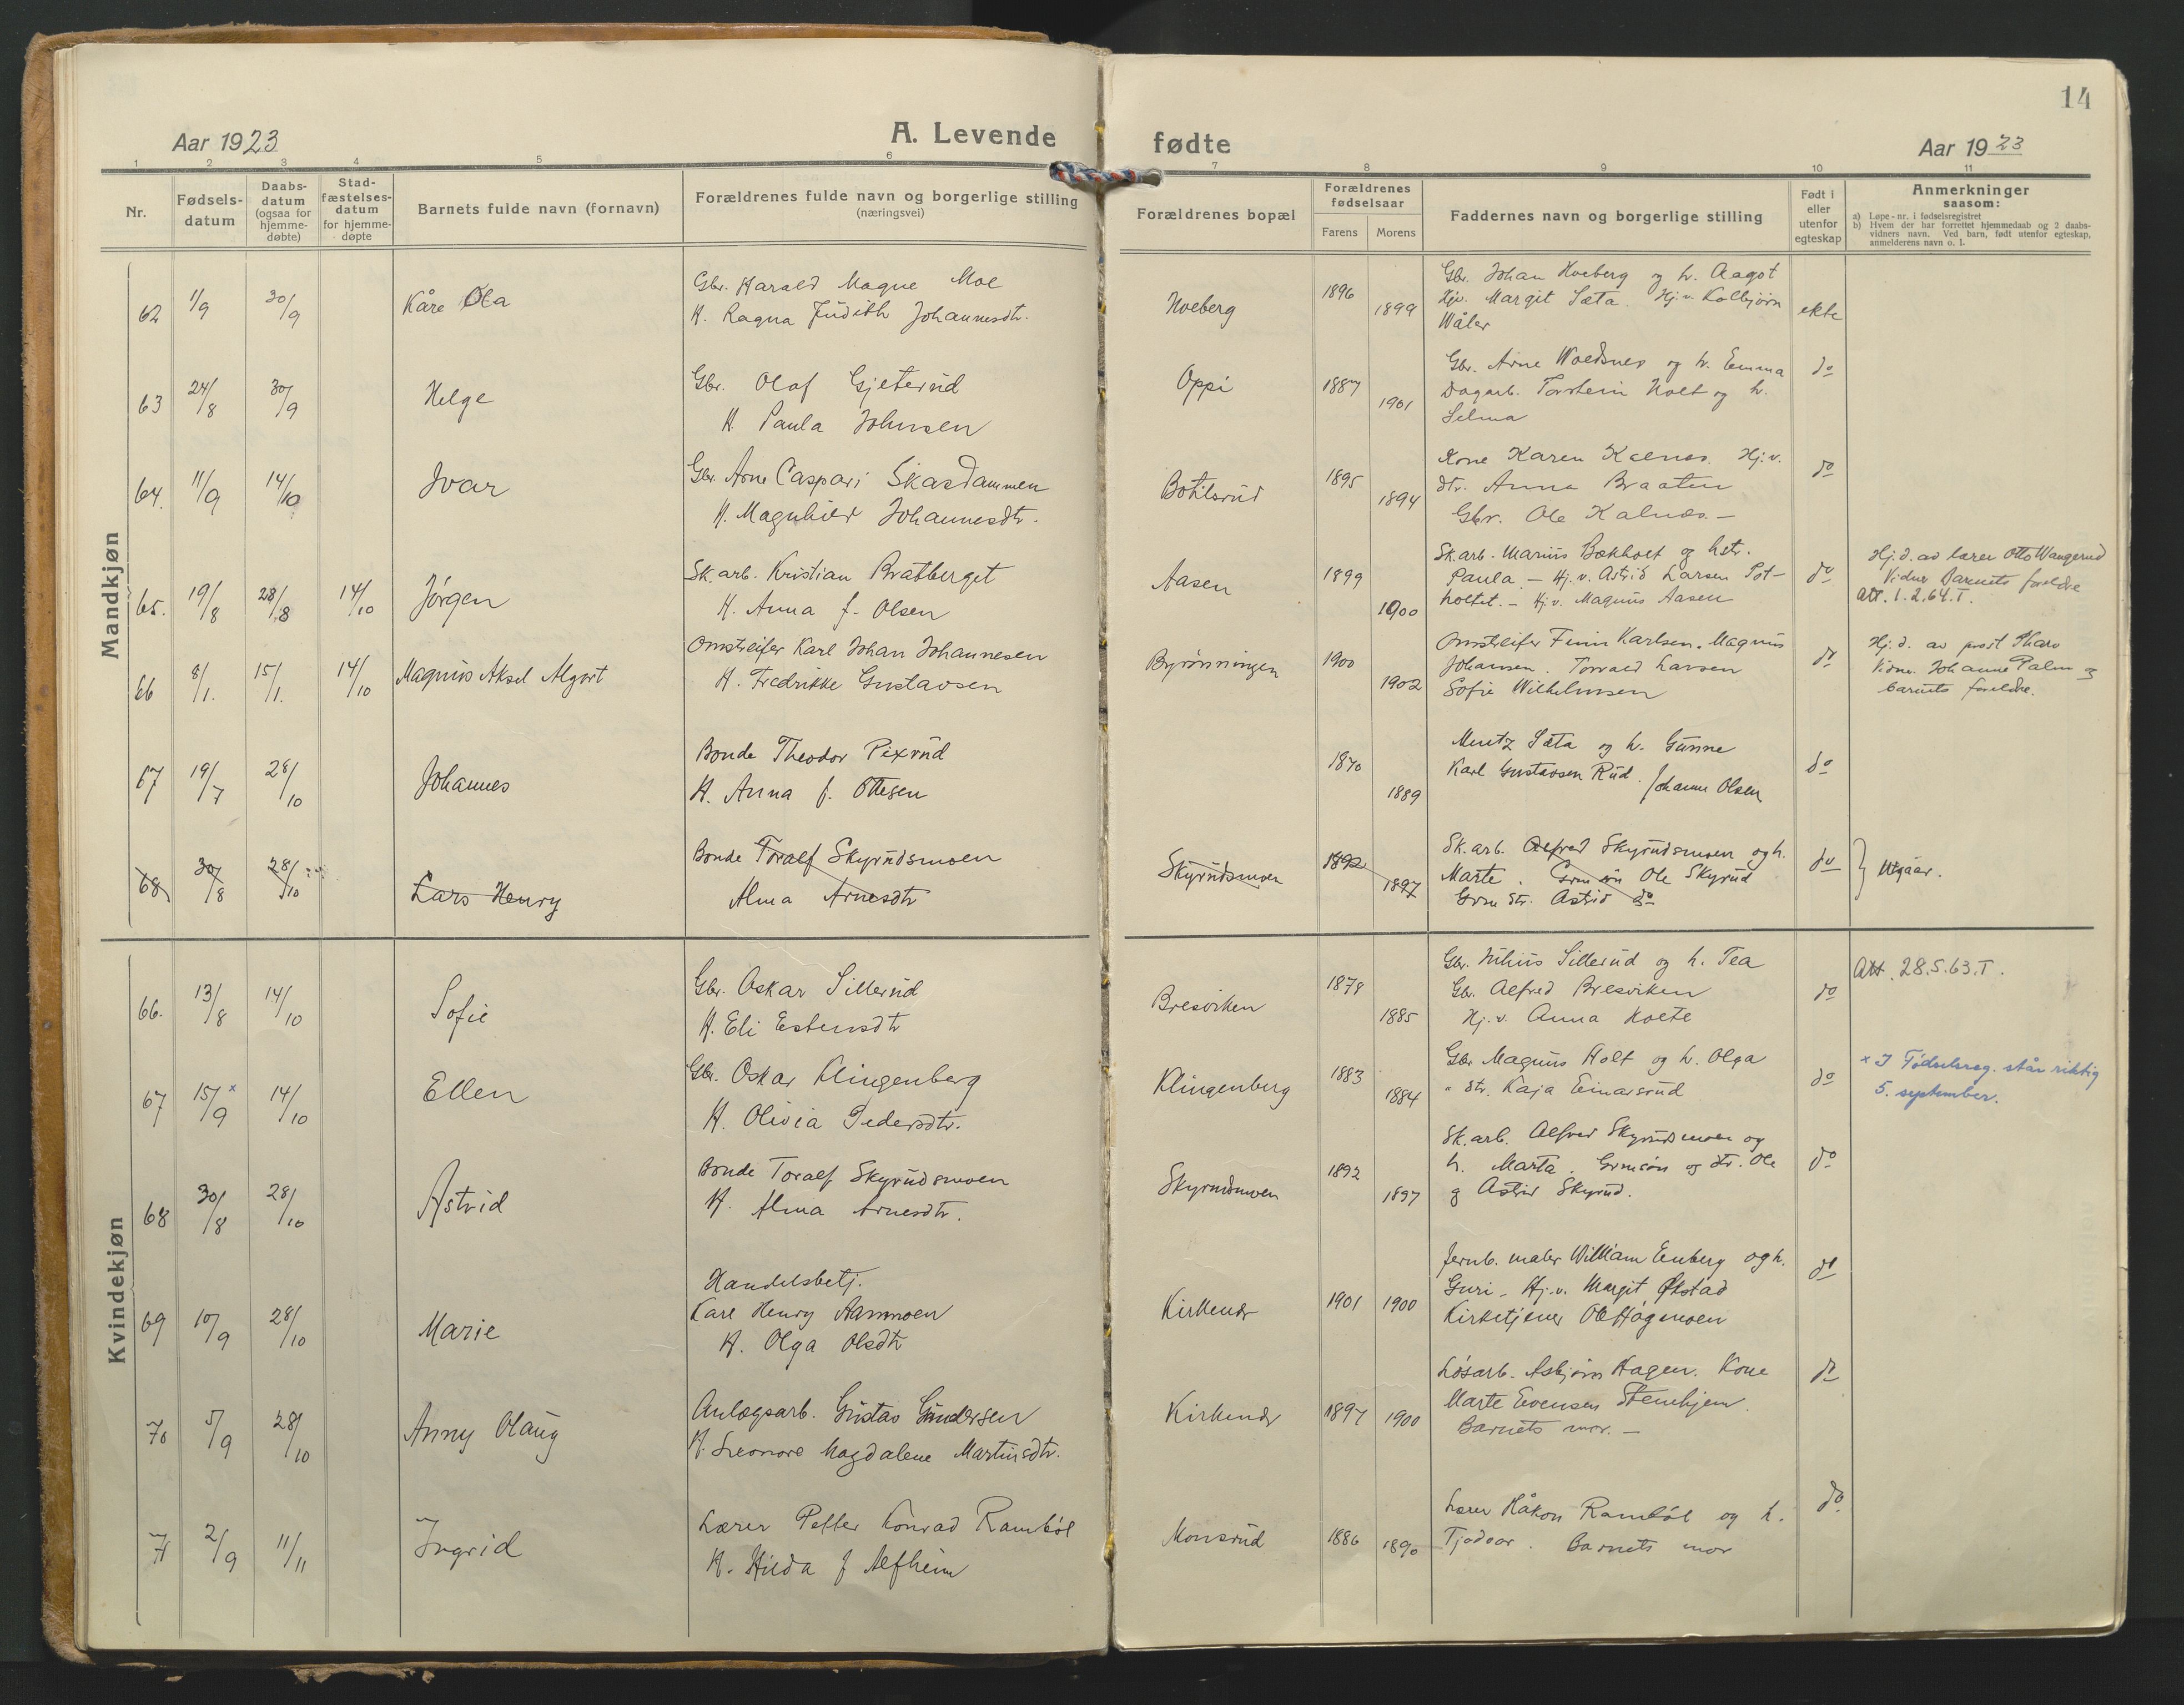 14
Aar 1923
A. Levende
fødte
Aar 1923
1 2 3 4 5 6 7 8 9 10 11
Nr.
Fødsels-
datum
Daabs-
datum
(ogsaa for
hjemme-
døbte)
Stad-
fæstelses-
datum
for hjemme-
døpte
Barnets fulde navn (fornavn)
Forældrenes fulde navn og borgerlige stilling
(næringsvei)
Forældrenes bopæl
Forældrenes
fødselsaar
Farens Morens
Faddernes navn og borgerlige stilling
Født i
eller
utenfor
egteskap
Anmerkninger
saasom:
a) Løpe-nr. i fødselsregistret
b) Hvem der har forrettet hjemmedaab og 2 daabs-
vidners navn. Ved barn, født utenfor egteskap,
anmelderens navn o. l.
Mandkjøn
62 1/9 30/9 Kåre Ola
Gbr. Harald Magne Moe
H. Ragna Judith Johannesdtr.
Hveberg 1896 1899
Gbr. Johan Hveberg og h. Aagot
Hjv. Margit Sæta. Hj.v. Kolbjörn
Wåler
ekte
63 24/8 30/9 Helge
Gbr. Olaf Gjeterud
H. Paula Johnsen
Oppi 1887 1901
Gbr. Arne Woldsnes og h. Emma
Dagarb. Torstein Holt og h.
Selma
do
64. 11/9 14/10 Ivar
Gbr. Arne Caspari Skasdammen
H. Magnhild Johannesdtr.
Botilsrud 1895 1894
Kone Karen Kalnæs. Hj.v.
dtr. Anna Braaten
Gbr. Ole Kalnæs.–
do
65. 19/8 28/8 14/10 Jörgen
Sk.arb. Kristian Bratberget
H. Anna f. Olsen
Aasen 1899 1900
Sk.arb. Marius Bekholt og hstr.
Paula – Hj.v. Astrid Larsen Pot-
holtet. – Hj.v. Magnus Aasen
do
Hj.d. av lærer Otto Wangerud
Vidner Barnets foreldre
Att. 1.2.64.T.
66 8/1. 15/1. 14/10 Magnus Aksel Algort
Omstreifer Karl Johan Johannesen
H. Fredrikke Gustavsen
Byrönningen 1900 1902
Omstreifer Finn Karlsen. Magnus
Johansen. Torvald Larsen
Sofie Wilhelmsen
do
Hj.d. av prost Tharo
Vidner. Johanne Palm og
barnets foreldre.
67 19/7 28/10 Johannes
Bonde Theodor Pixrud
H. Anna f. Ottesen
1870 1889
Mentz Sæta og h. Gunne
Karl Gustavsen Rud. Johanne Olsen
do
68 30/8 28/10 Lars Henry
Bonde Toralf Skyrudsmoen
Alma Arnesdtr
Skyrudsmoen 1892 1897
Sk.arb. Alfred Skyrudsmoen og h.
Marte. Grm sön Ole Skyrud
Grm dtr. Astrid do
do
Utgåar.
Kvindekjøn
66. 13/8 14/10 Sofie
Gbr. Oskar Sillerud
H. Eli Estensdtr
Bresviken 1878 1885
Gbr. Julius Sillerud og h. Tea
Gbr. Alfred Bresviken
Hj.v. Anna Holte
do
Att. 28.5.63.T.
67 15/9 x 14/10 Ellen
Gbr. Oskar Klingenberg
H. Olivia Pedersdtr.
Klingenberg 1883 1884
Gbr. Magnus Holt og h. Olga
" dtr. Kaja Einarsrud
do
x I Födselsreg. står riktig
5. september.
68 30/8 28/10 Astrid
Bonde Toralf Skyrudsmoen
H. Alma Arnesdtr.
Skyrudsmoen 1892 1897
Sk.arb. Alfred Skyrudsmoen og
h. Marta. Grmsön og dtr. Ole
og Astrid Skyrud.
do
69 10/9 28/10 Marie
Handelsbetj.
Karl Henry Aamoen
H. Olga Olsdtr
Kirkenær 1901 1900
Jernb. maler William Enberg og h.
Guri – Hj.v. Margit Økstad
Kirketjener Ole Hagemoen
do
70 5/9 28/10 Anny Olaug
Anlægsarb. Gustav Gundersen
H. Leonore Magdalene Martinsdtr.
Kirkenær 1897 1900
Løsarb. Asbjørn Hagen. Kone
Marte Evensen Stenhjem.
Barnets mor. –
do
71 2/9 11/11 Ingrid
Lærer Petter Konrad Ramböl
H. Hilda f Alfheim
Monsrud 1886 1890
Lærer Håkon Ramböl og h.
Tjodvor. Barnets mor
do